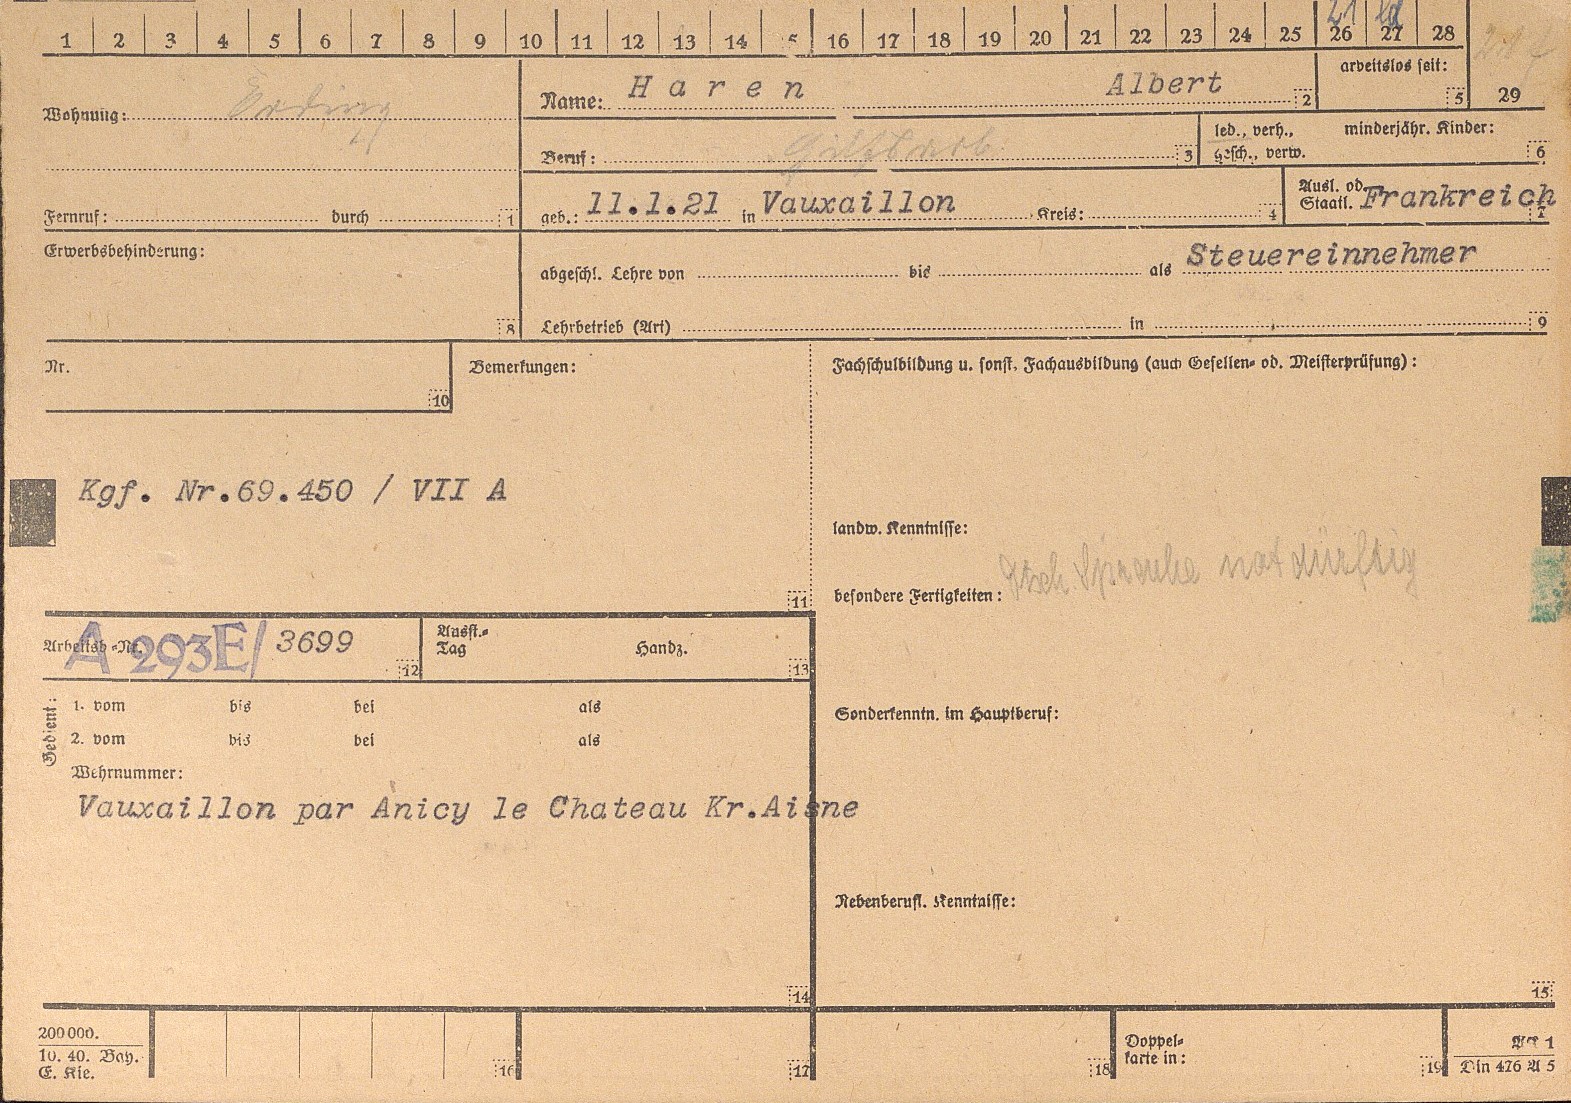 1 2 3 4 5 6 7 8 9 10 11 12 13 14 5 16 17 18 19 20 21 22 23 24 25 26 27 28 29
21
arbeitslos seit: 5
Wohnung: Erding
Name: Haren Albert 2
Beruf: Hilfsarb 3
led., verh., minderjähr. Kinder:
gesch., verw. 6
Fernruf: durch 1
geb.: 11.1.21 in Vauxaillon Kreis: 4
Ausl. od.
Staatl. Frankreich 7
Erwerbsbehinderung: 8
abgeschl. Lehre von bis als Steuereinnehmer
Lehrbetrieb (Art) in 9
Nr. 10
Bemerkungen:
Kgf. Nr.69.450 / VII A
11
Fachschulbildung u. sonst. Fachausbildung (auch Gesellen- od. Meisterprüfung):
landw. Kenntnisse:
besondere Fertigkeiten: Dtsch. Sprache notdürftig
Arbeitsb.-Nr. A 293E/ 3699 12
Ausst.-
Tag Handz. 13
Gedient:
1. vom bis bei als
2. vom bis bei als
Wehrnummer:
Vauxaillon par Anicy le Chateau Kr.Aisne
14
Sonderkenntn. im Hauptberuf:
Nebenberufl. Kenntnisse:
15
200000.
10. 40. Bay.
E. Kie.
16 17 18
Doppel-
karte in: 19
AA 1
Din 476 A 5